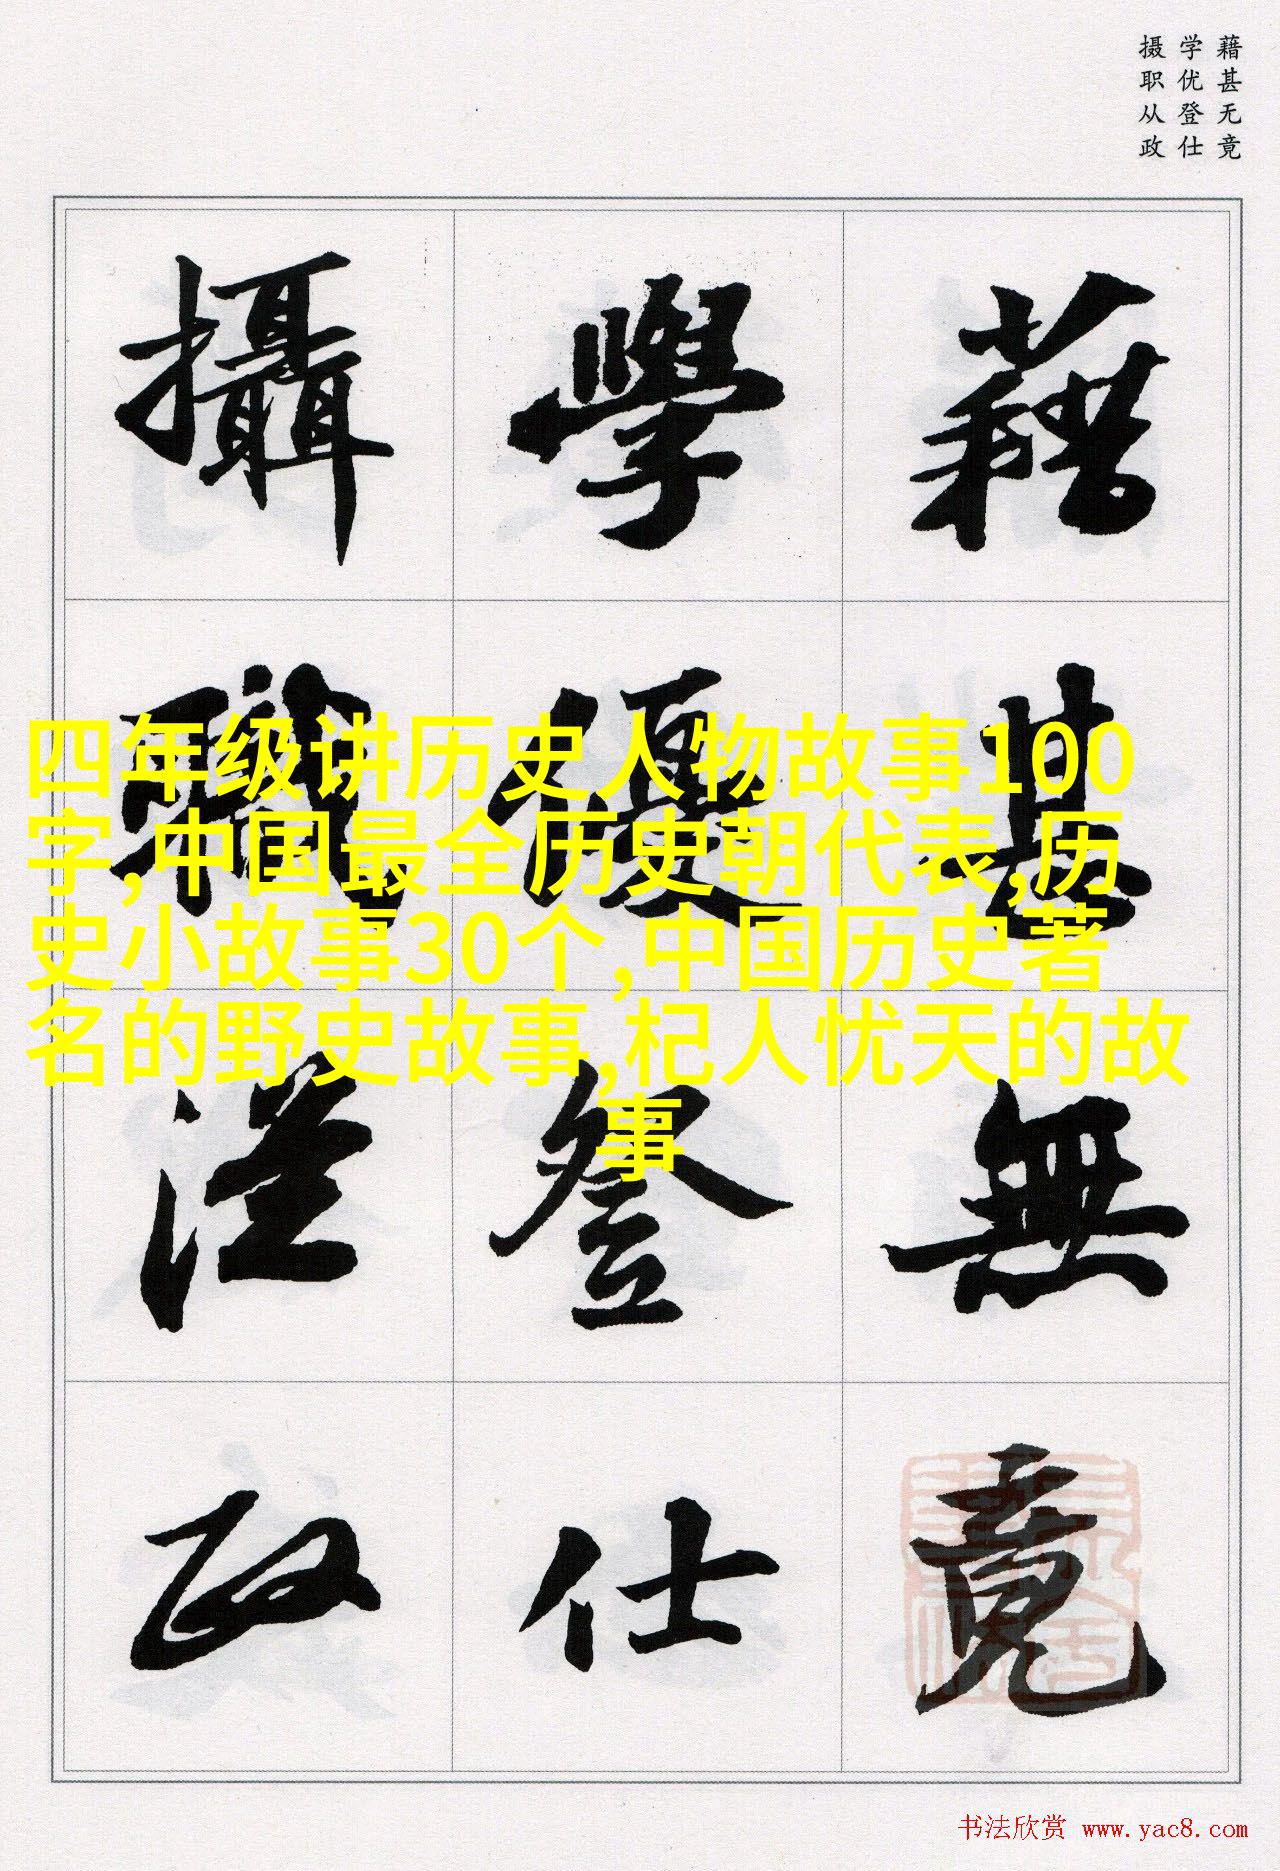 藉甚无竟
学优登仕
摄职从政
藉甚無竟
學優登仕
攝職從政
四年级讲历史人物故事100
字,中国最全历史朝代表,历
史小故事30个,中国历史著
名的野史故事,杞人忧天的故
事
书法欣赏 www.yac8.com